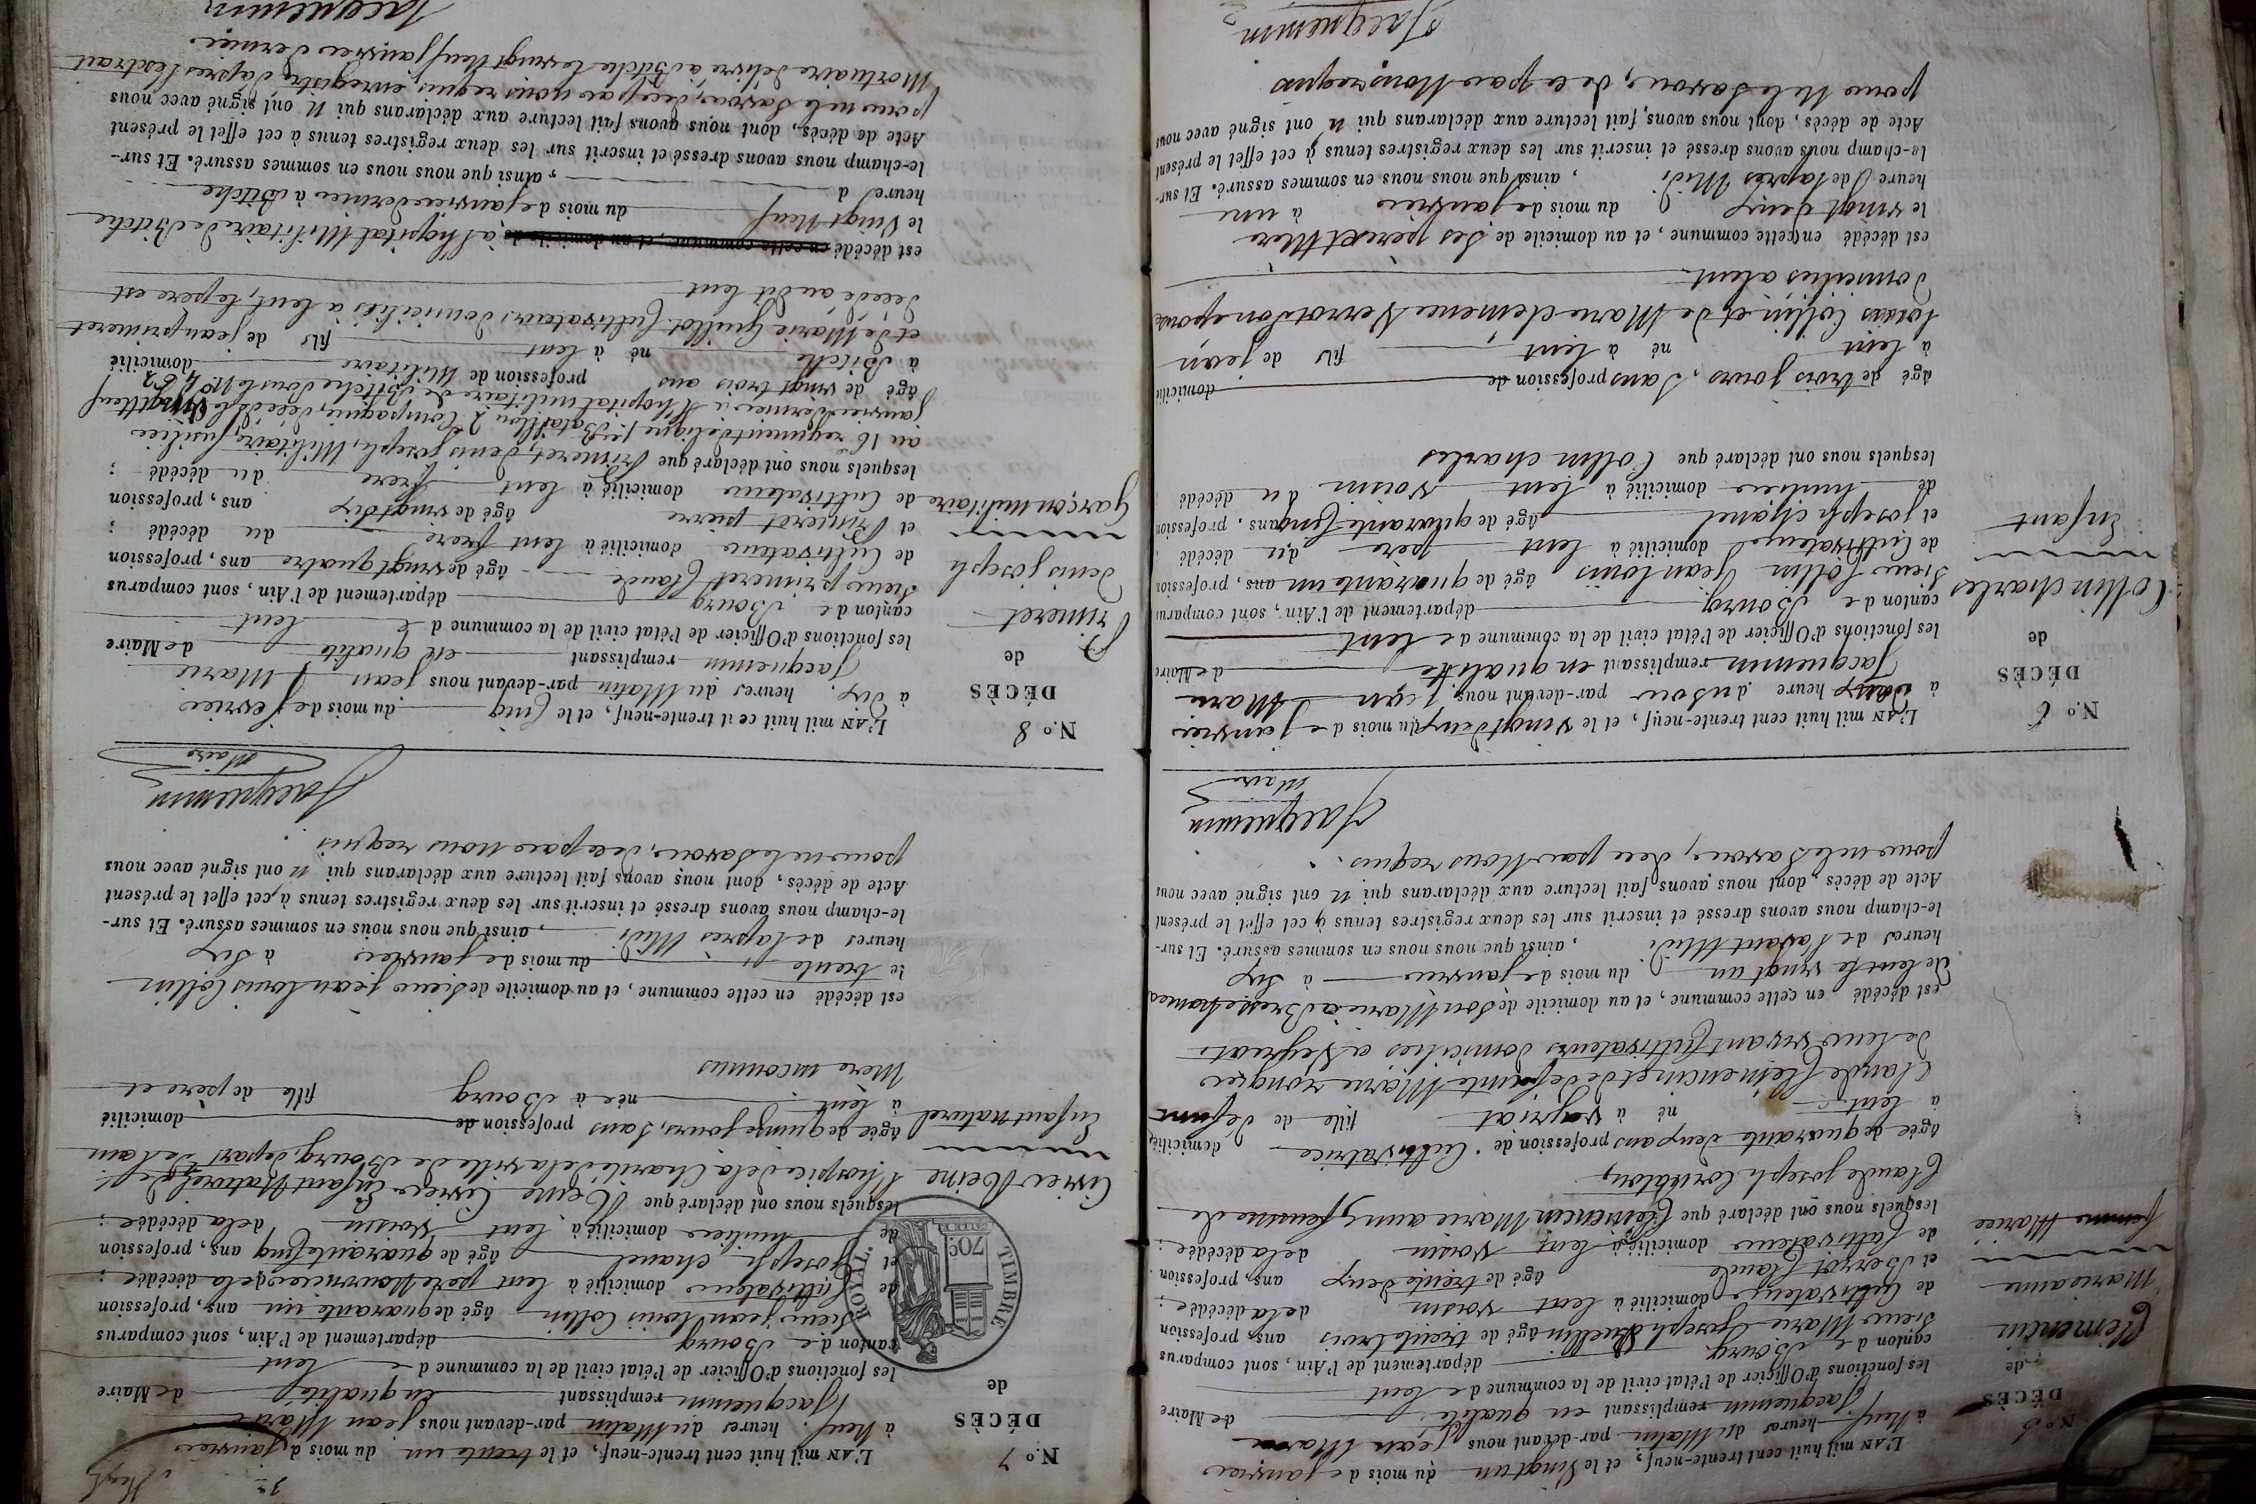 N.º 5
DÉCÈS
de
Clémencin
Marieanne
femme Mariée
L'AN mil huit cent trent-neuf, et le Vingt un du mois de janvier
à Neuf heures du Matin par-devant nous jean Marie
Jacquemin remplissant en qualité de Maire
les fonctions d'Officier de l'état civil de la commune de lent
canton de Bourg département de l'Ain, sont comparus
Sieur Marie Joseph âgé de trente trois ans, profession
de Cultivateur domicilié à lent voisin de la décédée ;
et Berrot Claude âgé de trente deux ans, profession
de Cultivateur domicilié à lent voisin de la décédée ;
lesquels nous ont déclaré que Clémencin Marie anne, femme de
Claude joseph
âgée de quarante deux ans profession de Cultivatrice domiciliée
à lent né à fille de defunt
Claude Clémencin et de defunte Marie
de leur vivant Cultivateurs domiciliés a
est décédé en cette commune, et au domicile de Son Marie a
de lent le vingt un du mois de janvier à Six
heures de l'avant Midi , ainsi que nous nous en sommes assuré. Et sur-
le-champ nous avons dressé et inscrit sur les deux registres tenus à cet effet le présent
Acte de décès, dont nous avons fait lecture aux déclarans qui n' ont signé avec nous
pour ne le Savoir, de ce par Nous requis.
Jacquemin
Maire
N.º 6
DÉCÈS
de
Collin charles
Enfant
L'AN mil huit cent trente-neuf, et le vingt deux du mois de janvier
à deux heure du Soir par-devant nous jean Marie
Jacquemin remplissant en qualité de Maire
les fonctions d'Officier de l'état civil de la commune de lent
canton de Bourg département de l'Ain, sont comparus
Sieur Collin Jean louis âgé de quarante un ans, profession
de Cultivateur domicilié à lent père du décédé ;
et joseph chanel âgé de quarante Cinq ans, profession
de domicilié à lent voisin du décédé ;
lesquels nous ont déclaré que Collin charles
âgé de trois jours, Sans profession de domicilié
à lent né à lent fils de jean
louis Collin et de Marie clemence Verrot Son epouse
domiciliés a lent
est décédé en cette commune, et au domicile de Ses père et Mère
le vingt deux du mois de janvier à une
heure de l'après Midi , ainsi que nous nous en sommes assuré. Et sur-
le-champ nous avons dressé et inscrit sur les deux registres tenus à cet effet le présent
Acte de décès, dont nous avons fait lecture aux déclarans qui n' ont signé avec nous
pour Ne le Savoir, de ce par Nous requis
Jacquemin
TIMBRE ROYAL
70c
N.º 7
DÉCÈS
de
Reine
Enfant naturel
L'AN mil huit cent trent-neuf, et le trente un du mois de janvier
à Neuf heures du Matin par-devant nous jean Marie
Jacquemin remplissant en qualité de Maire
les fonctions d'Officier de l'état civil de la commune de lent
canton de Bourg département de l'Ain, sont comparus
Sieur jean louis Collin âgé de quarante un ans, profession
de Cultivateur domicilié à lent père Nourricier de la décédée ;
et Joseph chanel âgé de quarante Cinq ans, profession
de domicilié à lent voisin de la décédée ;
lesquels nous ont déclaré que Reine Enfant Naturel de
l'hospice de la Charité de la ville de Bourg, depart. de l'ain
âgée de quinze jours, Sans profession de domicilié
à lent née à Bourg fille de père et
Mère inconnus
est décédé en cette commune, et au domicile de Sieur jean louis Collin
le trente du mois de janvier à Six
heures de l'après Midi , ainsi que nous nous en sommes assuré. Et sur-
le-champ nous avons dressé et inscrit sur les deux registres tenus à cet effet le présent
Acte de décès, dont nous avons fait lecture aux déclarans qui n' ont signé avec nous
pour ne le Savoir, de ce par Nous requis
Jacquemin
Maire
N.º 8
DÉCÈS
de
Primeret
Denis joseph
Garçon militaire
L'AN mil huit cent trente-neuf, et le Cinq du mois de fevrier
à Dix heures du Matin par-devant nous jean Marie
Jacquemin remplissant en qualité de Maire
les fonctions d'Officier de l'état civil de la commune de lent
canton de Bourg département de l'Ain, sont comparus
Sieur primeret Claude âgé de vingt quatre ans, profession
de Cultivateur domicilié à lent frere du décédé ;
et Primeret pierre âgé de vingt dix ans, profession
de Cultivateur domicilié à lent frere du décédé ;
lesquels nous ont déclaré que Primeret, denis joseph, Militaire, fusilier
au 16 regiment de ligne 1er Bataillon 2e Compagnie, decédé le vingt Neuf
janvier dernier a l'hopital militaire de Bitche Sous le Nº 462
âgé de vingt trois ans profession de Militaire domicilié
à Bitche né à lent fils de jean primeret
et de Marie Guillot Cultivateurs domiciliés a lent, le père est
decedé au dit lent
est décédé en cette commune, et au domicile de à l'hopital Militaire de Bitche
le Vingt Neuf du mois de janvier dernier à Bitche
heure d , ainsi que nous nous en sommes assuré. Et sur-
le-champ nous avons dressé et inscrit sur les deux registres tenus à cet effet le présent
Acte de décès, dont nous avons fait lecture aux déclarans qui n' ont signé avec nous
pour ne le Savoir, de ce par nous requis, enregistré d'après l'extrait
Mortuaire délivré a Bitche le vingt Neuf janvier dernier
Jacquemin